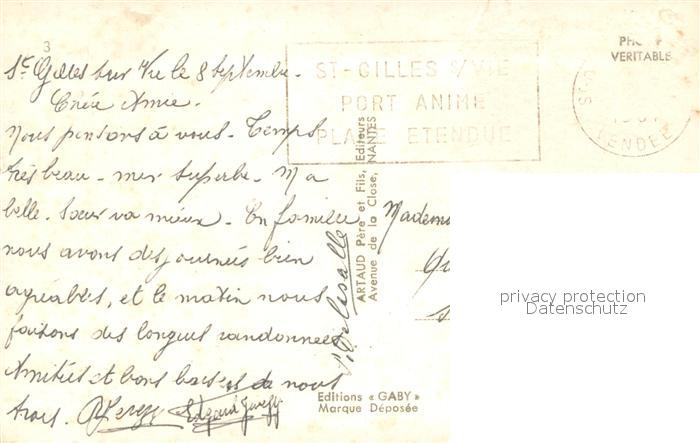 3
St Gilles sur Vie le 8 Septembre.
Chère Amie.
Nous pensons à vous. Temps
très beau. mer superbe. Ma
belle. Sœur va mieux. En famille
nous avons des journées bien
agréables, et le matin nous
faisons des longues randonnées
Amitiés et bons baisers de nous
trois.
ST-GILLES S/VIE
PORT ANIMÉ
PLAGE ETENDUE
PHOTO
VERITABLE
VENDEE
ARTAUD Père et Fils, Editeurs
Avenue de la Close, NANTES
Madem
privacy protection
Datenschutz
Editions « GABY »
Marque Déposée